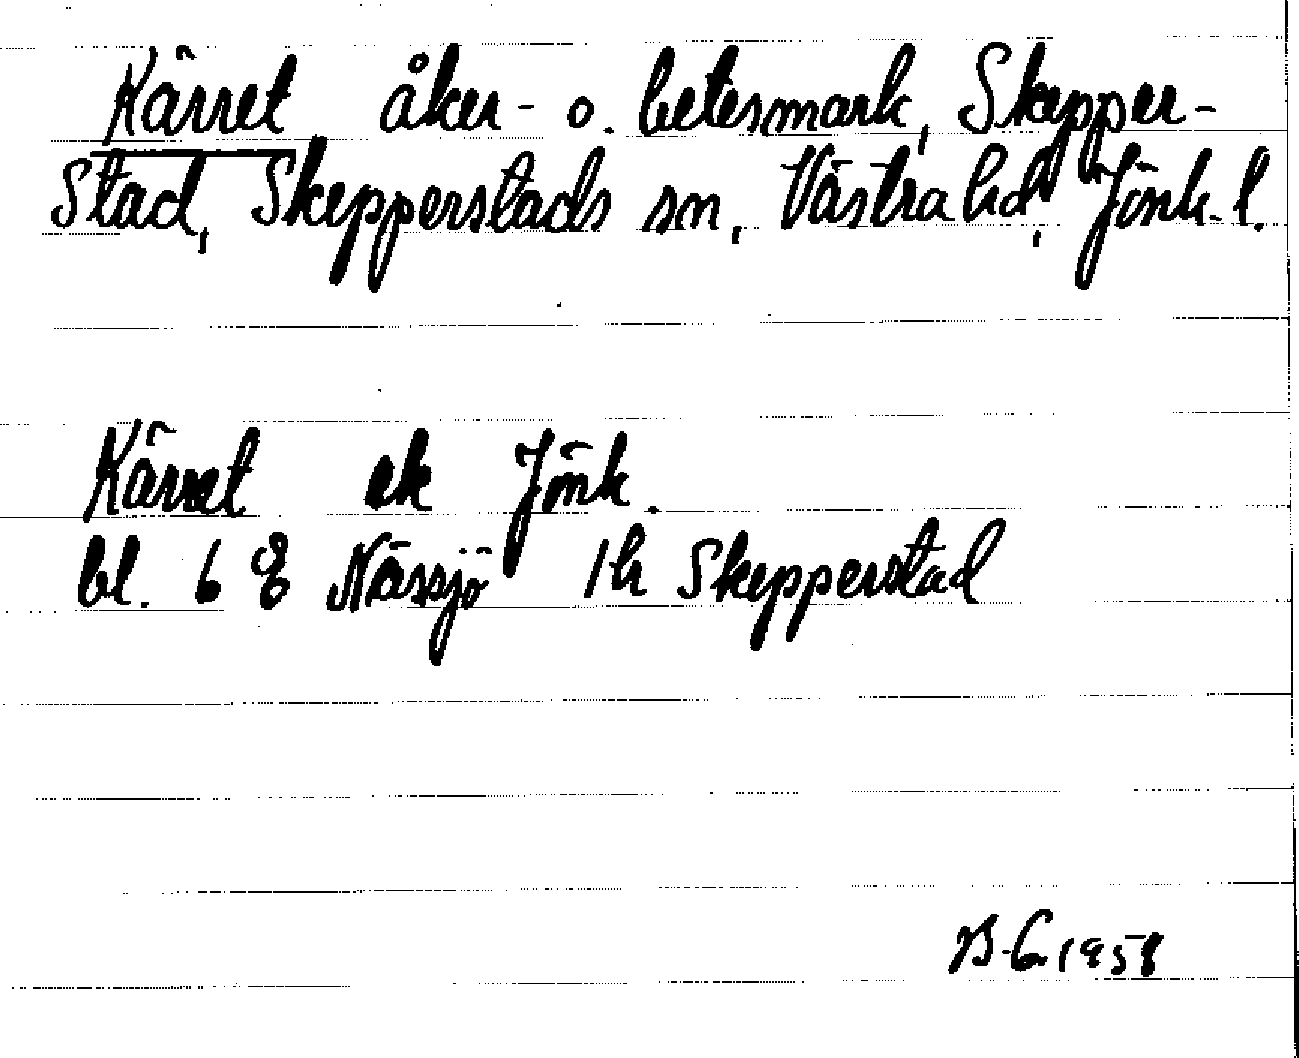 Kärret åker- o. betesmark, Skepper-
stad, Skepperstads sn, Västra hd, Jönk. l.
Kärret ek Jönk.
bl. 6 8 Nässjö 1h Skepperstad
B-G 1958